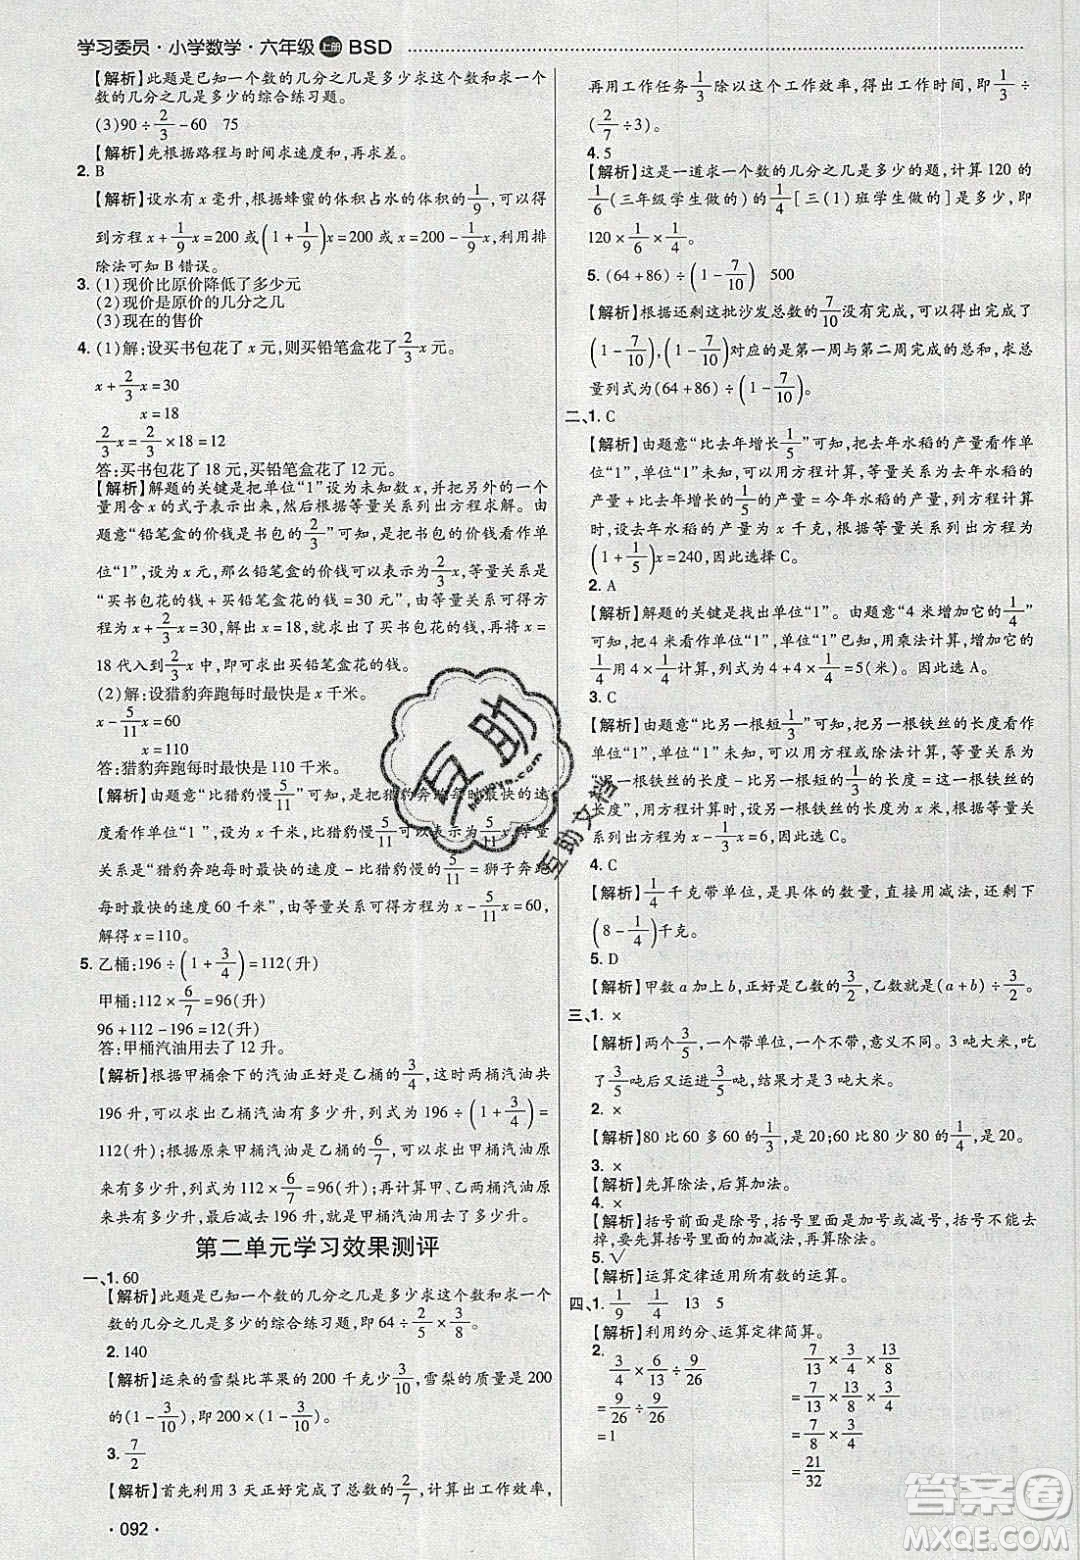 学习委员·小学数学·六年级 上册 BSD
【解析】此题是已知一个数的几分之几是多少求这个数和求一个
数的几分之几是多少的综合练习题。
(3)90÷2/3-60 75
【解析】先根据路程与时间求速度和,再求差。
2. B
【解析】设水有 x 毫升,根据蜂蜜的体积占水的体积的1/9,可以得
到方程 x+1/9x=200 或(1+1/9)x=200 或 x=200-1/9x,利用排
除法可知 B 错误。
3. (1)现价比原价降低了多少元
(2)现价是原价的几分之几
(3)现在的售价
4. (1)解:设买书包花了 x 元,则买铅笔盒花了2/3x元。
x+2/3x=30
x=18
2/3x=2/3×18=12
答:买书包花了 18 元,买铅笔盒花了 12 元。
【解析】解题的关键是把单位“1”设为未知数 x,并把另外的一个
量用含 x 的式子表示出来,然后根据等量关系列出方程求解。由
题意“铅笔盒的价钱是书包的2/3”可知,把书包的价钱看作单
位“1”,设为 x 元,那么铅笔盒的价钱可以表示为2/3x,等量关系是
“买书包花的钱+买铅笔盒花的钱=30 元”,由等量关系列方程为
x+2/3x=30,解出 x=18,就求出了买书包花的钱,再将 x=
18 代入到2/3x中,即可求出买铅笔盒花的钱。
(2)解:设猎豹奔跑每时最快是 x 千米。
x-5/11x=60
x=110
答:猎豹奔跑每时最快是 110 千米。
【解析】由题意“比猎豹慢5/11”可知,是把猎豹奔跑每时最快的速
度看作单位“1”,设为 x 千米,比猎豹慢5/11可以表示为5/11x,等量
关系是“猎豹奔跑每时最快的速度-比猎豹慢的5/11=狮子奔跑
每时最快的速度 60 千米”,由等量关系列方程为 x-5/11x=60,
解得 x=110。
5. 乙桶:196÷(1+3/4)=112(升)
甲桶:112×6/7=96(升)
96+112-196=12(升)
答:甲桶汽油用去了 12 升。
【解析】根据甲桶余下的汽油正好是乙桶的3/4,这时两桶汽油共
196 升,可以求出乙桶汽油有多少升,列式为 196÷(1+3/4)=
112(升);根据原来甲桶汽油是乙桶汽油的6/7,可以求出甲桶原
来有多少升,列式为 112×6/7=96(升);再计算甲、乙两桶汽油原
来共有多少升,最后减去 196 升,就是甲桶汽油用去了多少升。
第二单元学习效果测评
一、1. 60
【解析】此题是已知一个数的几分之几是多少求这个数和求一个
数的几分之几是多少的综合练习题,即 64÷2/5×3/8。
2. 140
【解析】运来的雪梨比苹果的 200 千克少3/10,雪梨的质量是 200
的(1-3/10),即 200×(1-3/10)。
3. 7/2
【解析】首先利用 3 天正好完成了任务的2/7,计算出工作效率,
·092·
再用工作任务1/3除以这个工作效率,得出工作时间,即1/3÷
(2/7÷3)。
4. 5
【解析】这是一道求一个数的几分之几是多少的题,计算 120 的
1/6(三年级学生做的)的1/4[三(1)班学生做的]是多少,即
120×1/6×1/4。
5. (64+86)÷(1-7/10) 500
【解析】根据还剩这批沙发总数的7/10没有完成,可以得出完成了
(1-7/10),(1-7/10)对应的是第一周与第二周完成的总和,求总
量列式为(64+86)÷(1-7/10)。
二、1. C
【解析】由题意“比去年增长1/5”可知,把去年水稻的产量看作单
位“1”,单位“1”未知,可以用方程计算,等量关系为去年水稻的
产量+比去年增长的1/5的产量=今年水稻的产量,列方程计算
时,设去年水稻的产量为 x 千克,根据等量关系列出方程为
(1+1/5)x=240,因此选择 C。
2. A
【解析】解题的关键是找出单位“1”。由题意“4 米增加它的1/4”
可知,把 4 米看作单位“1”,单位“1”已知,用乘法计算,增加它的
1/4用 4×1/4计算,列式为 4+4×1/4=5(米)。因此选 A。
3. C
【解析】由题意“比另一根短1/3”可知,把另一根铁丝的长度看作
单位“1”,单位“1”未知,可以用方程或除法计算,等量关系为
“另一根铁丝的长度-比另一根短的1/3的长度=这根铁丝的长
度”,用方程计算时,设另一根铁丝的长度为 x 米,根据等量
关系列出方程为 x-1/3x=6,因此选 C。
4. C
【解析】1/4千克带单位,是具体的数量,直接用减法,还剩下
(8-1/4)千克。
5. D
【解析】甲数 a 加上 b,正好是乙数的3/2,乙数就是(a+b)÷3/2。
三、1. ×
【解析】两个3/5,一个带单位,一个不带单位,意义不同。3 吨大米,吃
了3/5吨后又运进3/5吨,还是 3 吨大米。
2. ×
【解析】80 比 60 多 60 的1/3,是 20;60 比 80 少 80 的1/4,是 20。
3. ×
【解析】先算除法,后算加法。
4. ×
【解析】括号前面是除号,括号里面是乘法,括号不能去掉。
要先算括号里面的乘法,再算括号外面的除法。
5. √
【解析】运算定律适用所有数的运算。
四、1. 1/9 1/4 13 5
【解析】利用约分、运算定律简算。
2. 3/4×6/13÷9/26  7/13×3/4×13/8
=9/26÷9/26  =7/13×13/8×3/4
=1  =7/8×3/4
=21/32
互助
互助文档
答案圈
MXQE.COM